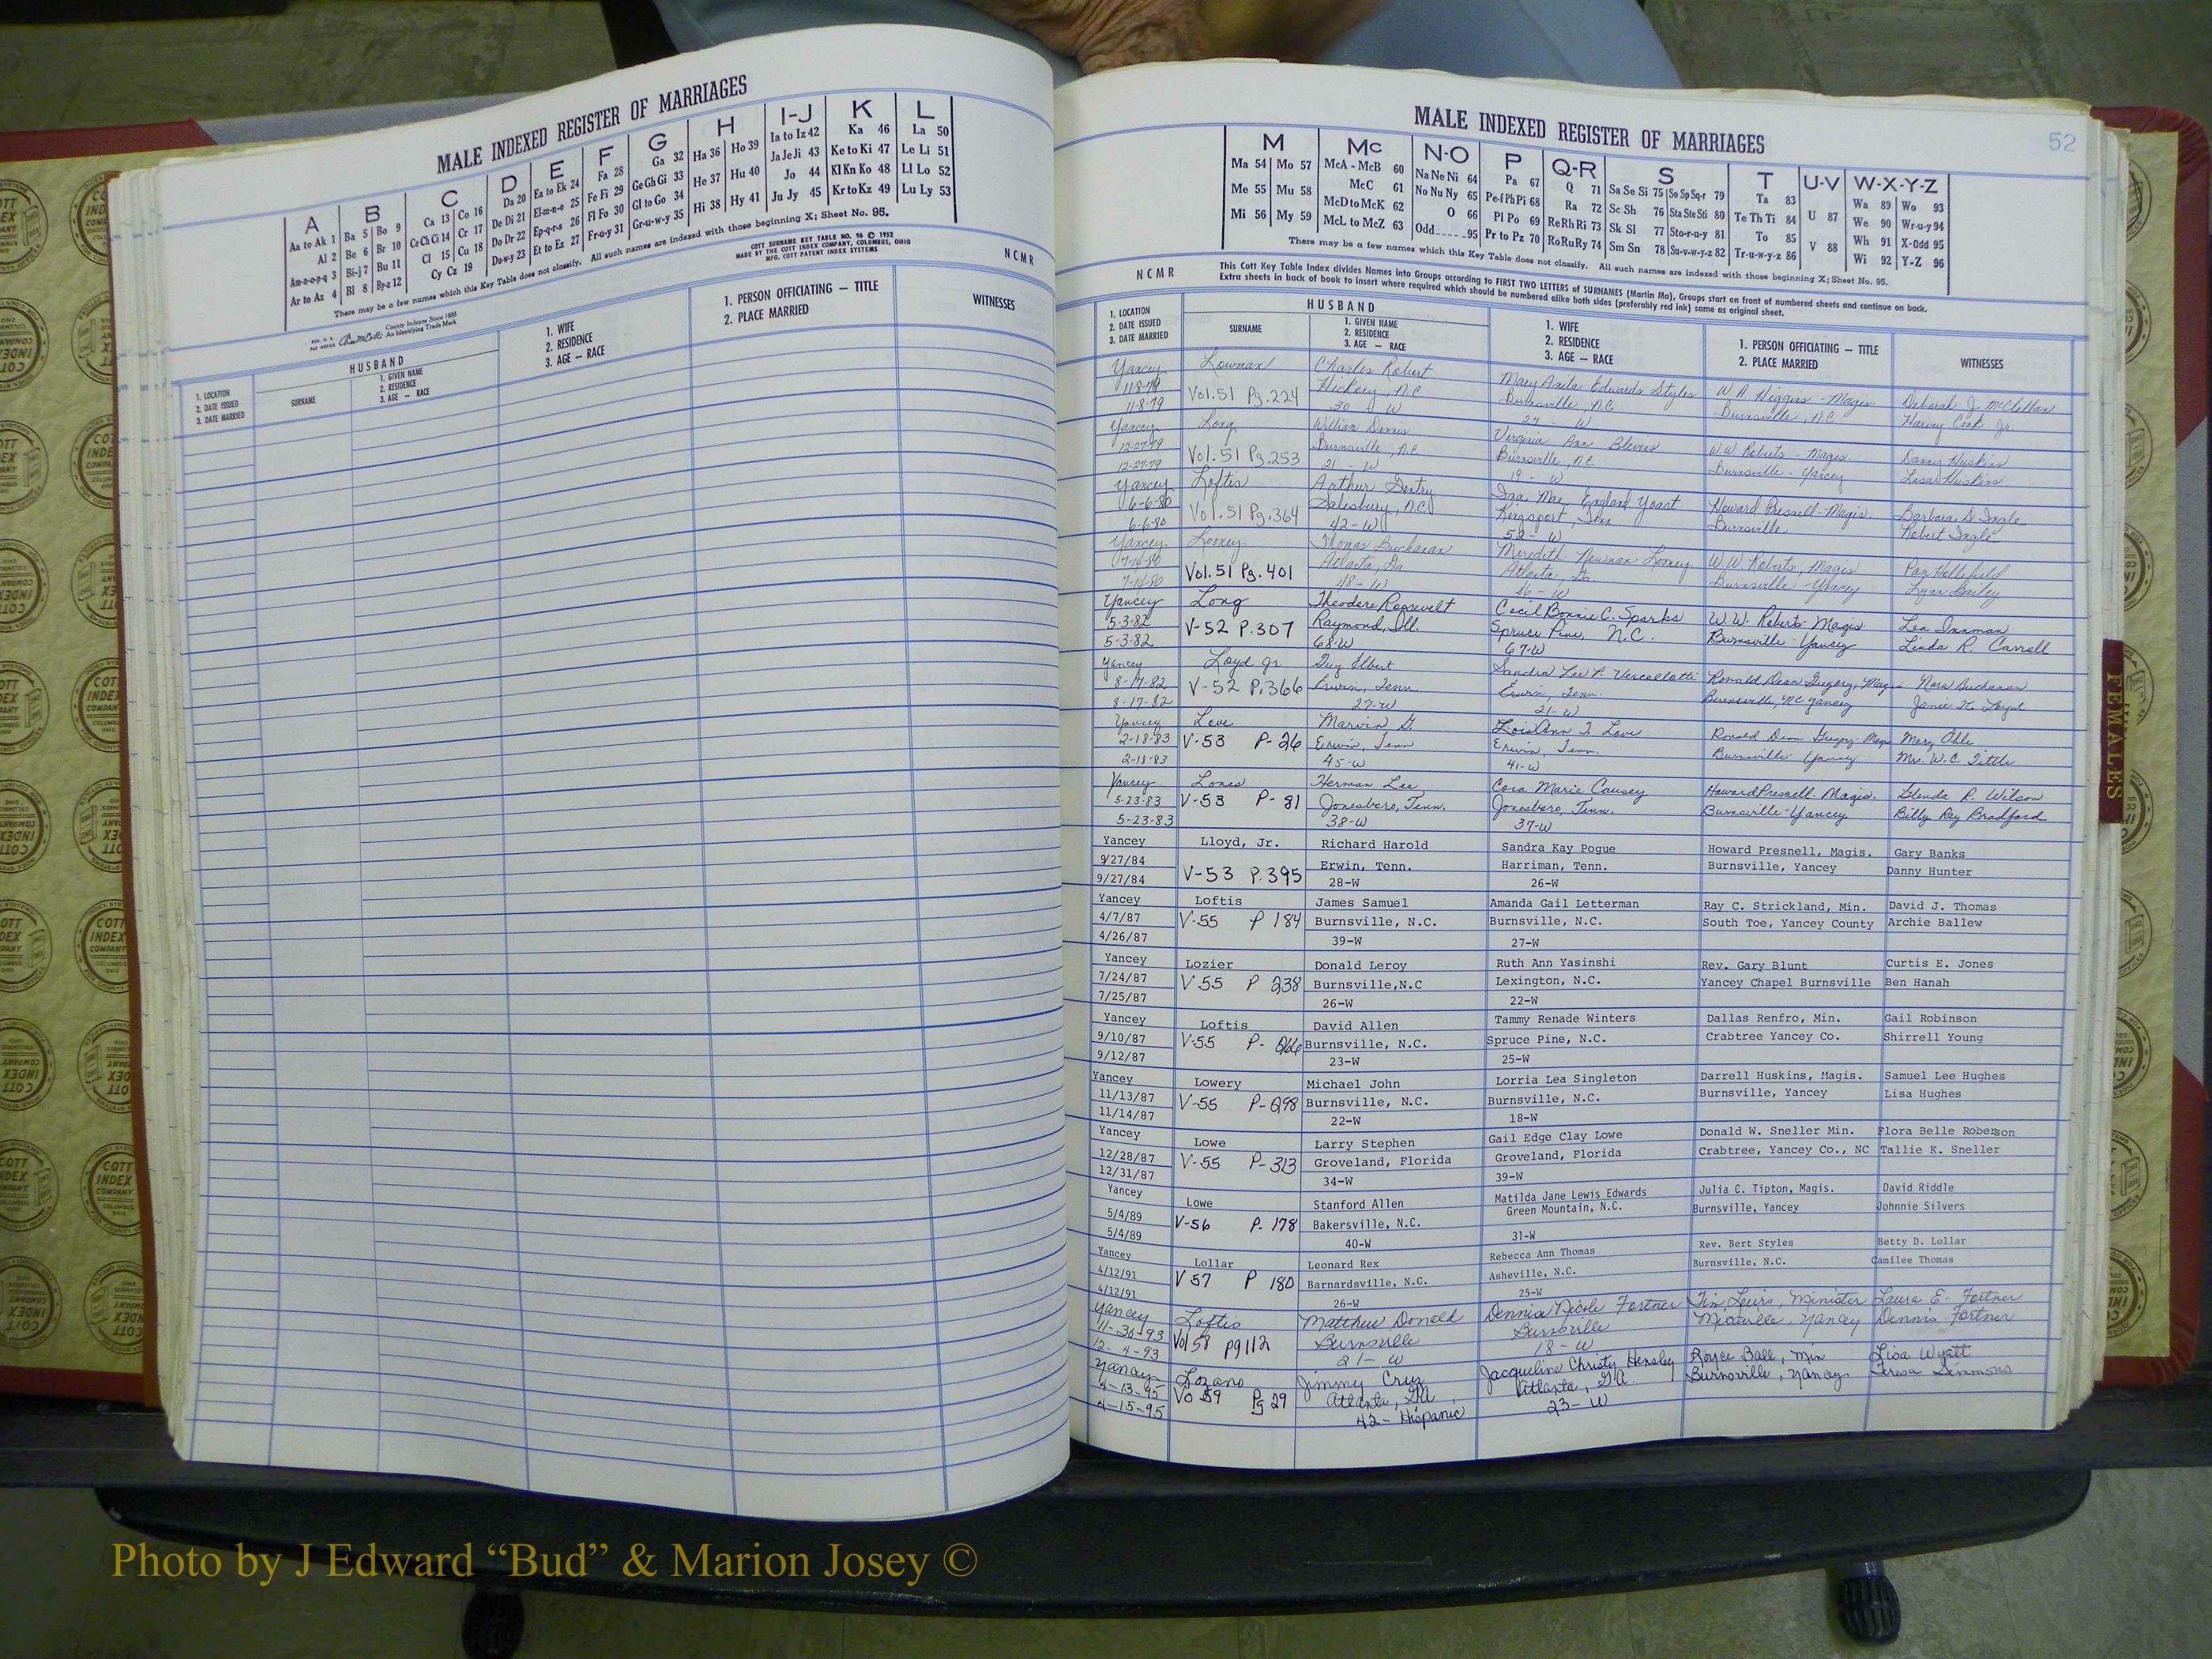 MALE INDEXED REGISTER OF MARRIAGES
A B C D E F G H I-J K L
Aa to Ak 1 Ba 5 Bo 9 Ca 13 Co 16 Da 20 Ea to Ek 24 Fa 28 Ga 32 Ha 36 Ho 39 Ia to Iz 42 Ka 46 La 50
Al 2 Be 6 Br 10 Ce Ch Ci 14 Cr 17 De Di 21 El-m-n-o 25 Fe Fi 29 Ge Gh Gi 33 He 37 Hu 40 Ja Je Ji 43 Ke to Ki 47 Le Li 51
Am-n-o-p-q 3 Bi-j 7 Bu 11 Cl 15 Cu 18 Do Dr 22 Ep-q-r-s 26 Fl Fo 30 Gl to Go 34 Hi 38 Hy 41 Jo 44 Kl Kn Ko 48 Ll Lo 52
Ar to Az 4 Bl 8 By-z 12 Cy Cz 19 Du-w-y 23 Et to Ez 27 Fr-u-y 31 Gr-u-w-y 35 Ju Jy 45 Kr to Kz 49 Lu Ly 53
There may be a few names which this Key Table does not classify. All such names are indexed with those beginning X; Sheet No. 95.
COTT SURNAME KEY TABLE NO. 96 © 1952
MADE BY THE COTT INDEX COMPANY, COLUMBUS, OHIO
MFG. COTT PATENT INDEX SYSTEMS
NCMR
County Indexes Since 1888
An Identifying Trade Mark
HUSBAND
1. LOCATION
2. DATE ISSUED
3. DATE MARRIED
SURNAME
1. GIVEN NAME
2. RESIDENCE
3. AGE — RACE
1. WIFE
2. RESIDENCE
3. AGE — RACE
1. PERSON OFFICIATING — TITLE
2. PLACE MARRIED
WITNESSES
MALE INDEXED REGISTER OF MARRIAGES
52
M Mc N-O P Q-R S T U-V W-X-Y-Z
Ma 54 Mo 57 McA - McB 60 Na Ne Ni 64 Pa 67 Q 71 Sa Se Si 75 So Sp Sq-r 79 Ta 83 U 87 Wa 89 Wo 93
Me 55 Mu 58 McC 61 No Nu Ny 65 Pe-f Ph Pi 68 Ra 72 Sc Sh 76 Sta Ste Sti 80 Te Th Ti 84 V 88 We 90 Wr-u-y 94
Mi 56 My 59 McD to McK 62 O 66 Pl Po 69 Re Rh Ri 73 Sk Sl 77 Sto-r-u-y 81 To 85 Wh 91 X-Odd 95
McL to McZ 63 Odd 95 Pr to Pz 70 Ro Ru Ry 74 Sm Sn 78 Su-v-w-y-z 82 Tr-u-w-y-z 86 Wi 92 Y-Z 96
There may be a few names which this Key Table does not classify. All such names are indexed with those beginning X; Sheet No. 95.
NCMR
This Cott Key Table Index divides Names into Groups according to FIRST TWO LETTERS of SURNAMES (Martin Ma), Groups start on front of numbered sheets and continue on back.
Extra sheets in back of book to insert where required which should be numbered alike both sides (preferably red ink) same as original sheet.
HUSBAND
1. LOCATION
2. DATE ISSUED
3. DATE MARRIED
SURNAME
1. GIVEN NAME
2. RESIDENCE
3. AGE — RACE
1. WIFE
2. RESIDENCE
3. AGE — RACE
1. PERSON OFFICIATING — TITLE
2. PLACE MARRIED
WITNESSES
Yancey Lowman Charles Robert Mary Anita Edwards Styles W A Higgins - Magis Deborah J. McClellan
11-8-79 Vol. 51 Pg. 224 Hickory, N.C. Burnsville, N.C. Burnsville, N.C. Harvey Cook Jr.
11-8-79 30 W 27 - W
Yancey Long William Dennis Virginia Ann Blevins W.W. Roberts - Magis Danny Huskins
12-27-79 Vol. 51 Pg. 253 Burnsville, N.C. Burnsville, N.C. Burnsville - Yancey Lisa Huskins
12-27-79 21 - W 19 - W
Yancey Loftis Arthur Gentry Ina Mae England Yoast Howard Presnell - Magis. Barbara D. Ingle
6-6-80 Vol. 51 Pg. 364 Salisbury, N.C. Kingsport, Tenn Burnsville Robert Ingle
6-6-80 42 - W 52 - W
Yancey Looney Thomas Buchanan Meredith Newman Looney W.W. Roberts, Magis
7-14-80 Vol. 51 Pg. 401 Atlanta, Ga Atlanta, Ga. Burnsville - Yancey Lynn Bailey
7-14-80 48 - W 46 - W
Yancey Long Theodore Roosevelt Cecil Bonnie C. Sparks W.W. Roberts Magis Lea Inman
5-3-82 V-52 P. 307 Raymond, Ill. Spruce Pine, N.C. Burnsville Yancey Linda R. Carroll
5-3-82 68-W 67-W
Yancey Loyd Jr Guy Elbert Sandra Lee P. Vercellotti Ronald Dean Gregory, Magis Nora Buchanan
8-17-82 V-52 P. 366 Erwin, Tenn Erwin, Tenn. Burnsville, NC Yancey Janie K. Loyd
8-17-82 27-W 21-W
Yancey Love Marvin G. Lois Ann T. Love Ronald Dean Gregory Magis Mary Ohle
2-18-83 V-53 P-26 Erwin, Tenn Erwin, Tenn. Burnsville Yancey Mrs. W.C. Tittle
2-18-83 45-W 41-W
Yancey Lones Herman Lee Cora Marie Causey Howard Presnell Magis. Glenda R. Wilson
5-23-83 V-53 P-81 Jonesboro, Tenn. Jonesboro, Tenn. Burnsville-Yancey Billy Ray Bradford
5-23-83 38-W 37-W
Yancey Lloyd, Jr. Richard Harold Sandra Kay Pogue Howard Presnell, Magis. Gary Banks
9/27/84 V-53 P. 395 Erwin, Tenn. Harriman, Tenn. Burnsville, Yancey Danny Hunter
9/27/84 28-W 26-W
Yancey Loftis James Samuel Amanda Gail Letterman Ray C. Strickland, Min. David J. Thomas
4/7/87 V-55 P 184 Burnsville, N.C. Burnsville, N.C. South Toe, Yancey County Archie Ballew
4/26/87 39-W 27-W
Yancey Lozier Donald Leroy Ruth Ann Yasinshi Rev. Gary Blunt Curtis E. Jones
7/24/87 V 55 P 238 Burnsville,N.C Lexington, N.C. Yancey Chapel Burnsville Ben Hanah
7/25/87 26-W 22-W
Yancey Loftis David Allen Tammy Renade Winters Dallas Renfro, Min. Gail Robinson
9/10/87 V-55 P- 266 Burnsville, N.C. Spruce Pine, N.C. Crabtree Yancey Co. Shirrell Young
9/12/87 23-W 25-W
Yancey Lowery Michael John Lorria Lea Singleton Darrell Huskins, Magis. Samuel Lee Hughes
11/13/87 V-55 P-298 Burnsville, N.C. Burnsville, N.C. Burnsville, Yancey Lisa Hughes
11/14/87 22-W 18-W
Yancey Lowe Larry Stephen Gail Edge Clay Lowe Donald W. Sneller Min. Flora Belle Roberson
12/28/87 V-55 P-313 Groveland, Florida Groveland, Florida Crabtree, Yancey Co., NC Tallie K. Sneller
12/31/87 34-W 39-W
Yancey Lowe Stanford Allen Matilda Jane Lewis Edwards Julia C. Tipton, Magis. David Riddle
5/4/89 V-56 P. 178 Bakersville, N.C. Green Mountain, N.C. Burnsville, Yancey Johnnie Silvers
5/4/89 40-W 31-W
Yancey Lollar Leonard Rex Rebecca Ann Thomas Rev. Bert Styles Betty D. Lollar
4/12/91 V 57 P 180 Barnardsville, N.C. Asheville, N.C. Burnsville, N.C. Camilee Thomas
4/12/91 26-W 25-W
Yancey Loftis Matthew Donald Dennia Nicole Fortner Tim Lewis, Minister Laura E. Fortner
11-30-93 Vol 58 pg 112 Burnsville Burnsville Micaville, Yancey Dennis Fortner
12-4-93 21- W 18- W
Yancey Lozano Jimmy Cruz Jacqueline Christy Hensley Royce Ball, Min Lisa Wyatt
4-13-95 Vo 59 Pg 29 Atlanta, GA Atlanta, GA Burnsville, Yancey Teresa Simmons
4-15-95 42- Hispanic 23- W
FEMALES
COTT
INDEX
COMPANY
Photo by J Edward “Bud” & Marion Josey ©